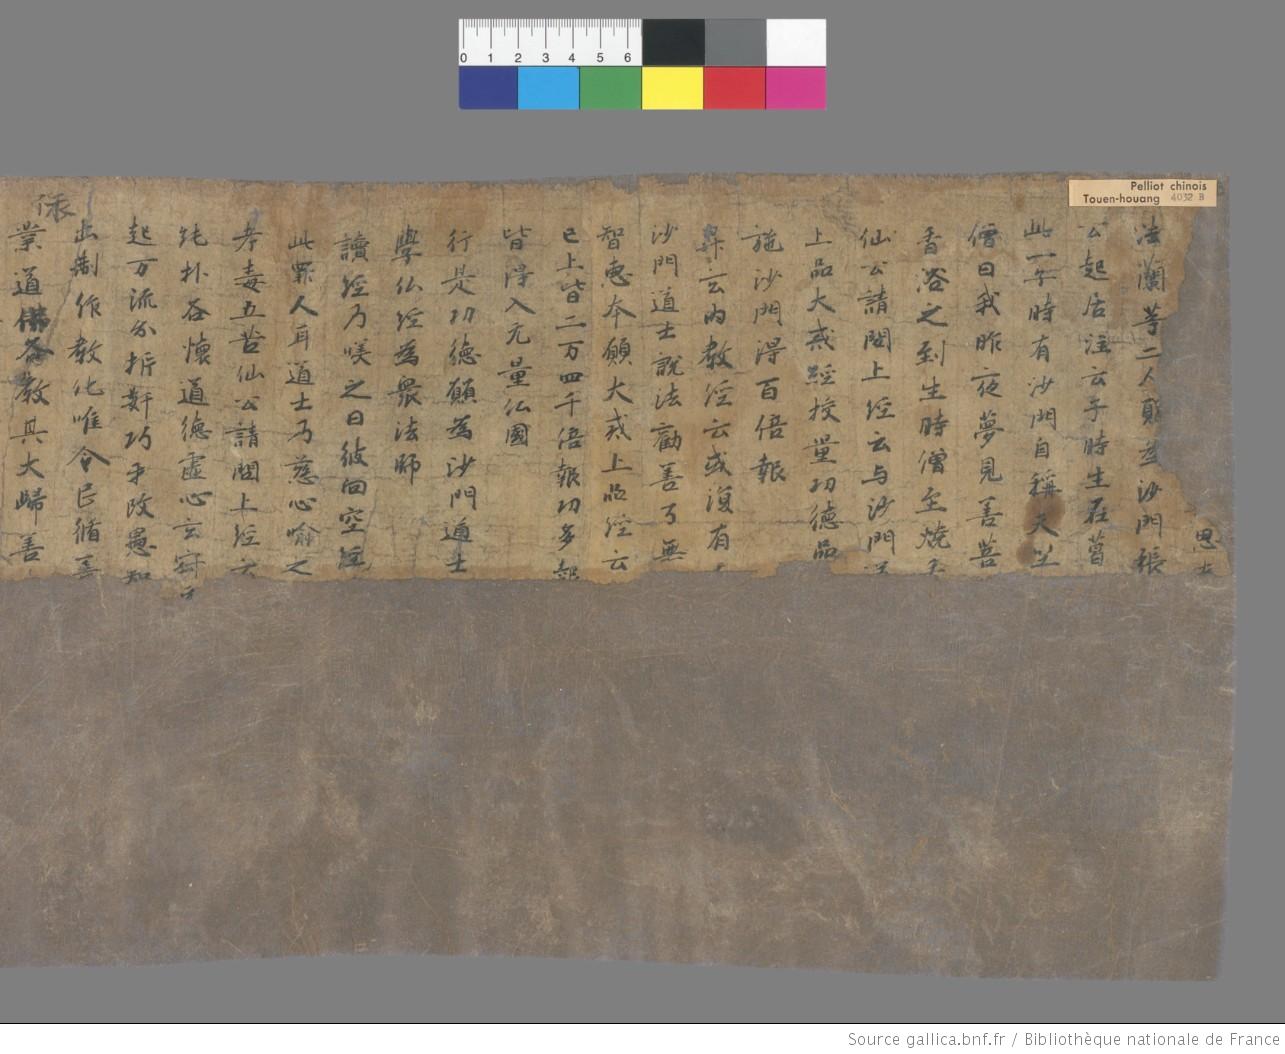 0 1 2 3 4 5 6
Pelliot chinois
Touen-houang 4032 B
思士
法蘭等二人願並沙門張
公起居注云子時生在葛
此一字時有沙門自稱天竺
僧曰我昨夜夢見善菩
香浴之到生時僧至燒
仙公請問上經云与沙門
上品大戒經挍量功德品
施沙門得百倍報
昇云內教經云或復有
沙門道士說法勸善了無
智惠本願大戒上品經云
已上皆二万四千倍報功多報
皆得入无量仏國
行是功德願為沙門道士
學仏經為衆法師
讀經乃𠹌之曰彼曰空經
此罪人耳道士乃慈心喻之
考毒五苦仙公請問上經云
純朴各懷道德虛心玄寂
起万流分折姧巧争改愚知
出制作教化唯令民循善
業道佛各教其大歸善
依
Source gallica.bnf.fr / Bibliothèque nationale de France